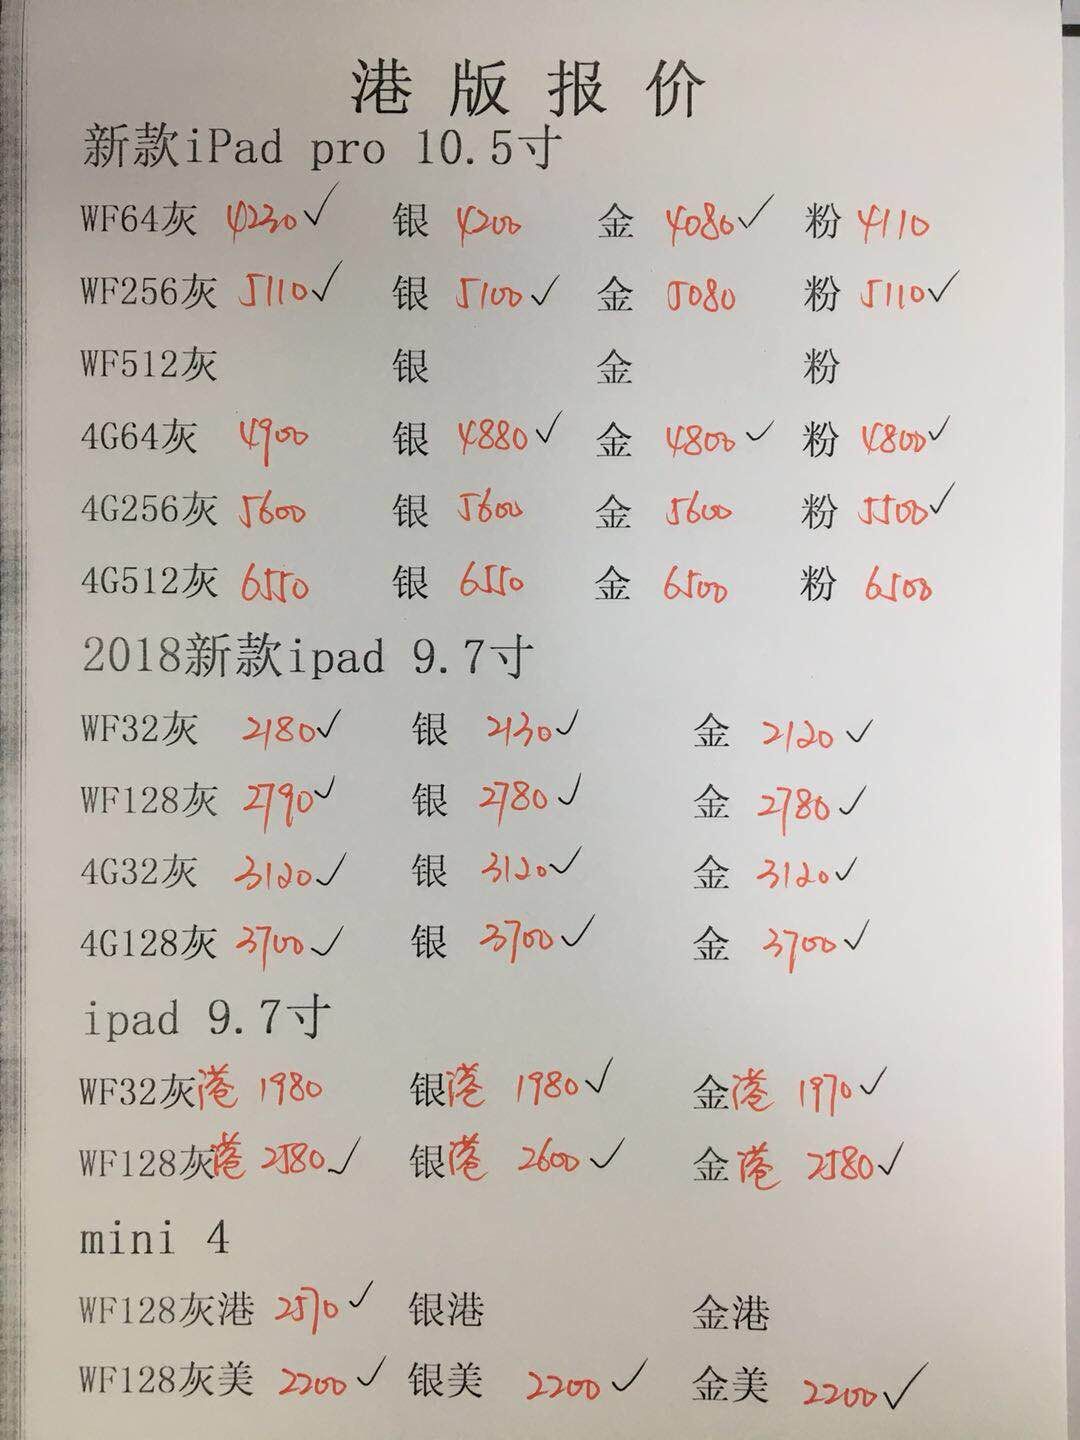 港版报价
新款iPad pro 10.5寸
WF64灰 4230✓ 银 4200 金 4080✓ 粉 4110
WF256灰 5110✓ 银 5100✓ 金 5080 粉 5110✓
WF512灰 银 金 粉
4G64灰 4900 银 4880✓ 金 4800✓ 粉 4800✓
4G256灰 5600 银 5600 金 5600 粉 5500✓
4G512灰 6550 银 6550 金 6500 粉 6500
2018新款ipad 9.7寸
WF32灰 2180✓ 银 2130✓ 金 2120✓
WF128灰 2790✓ 银 2780✓ 金 2780✓
4G32灰 3120✓ 银 3120✓ 金 3120✓
4G128灰 3700✓ 银 3700✓ 金 3700✓
ipad 9.7寸
WF32灰港 1980 银港 1980✓ 金港 1970✓
WF128灰港 2580✓ 银港 2600✓ 金港 2580✓
mini 4
WF128灰港 2570✓ 银港 金港
WF128灰美 2200✓ 银美 2200✓ 金美 2200✓